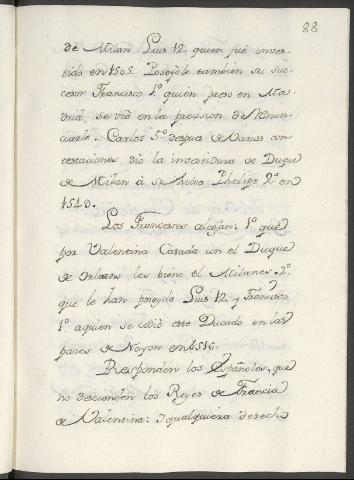 88
de Milan Luis 12. quien fué inves-
tido en 1505. Poseyóle tambien su suc-
cesor Francisco 1º quien preso en Ma-
drid, se vió en la precision de Renun-
ciarle. Carlos 5º despues de varias con-
testaciones, dió la investidura de Duque
de Milan à su hixo Phelipe 2º en
1549.
Los Franceses alegan: 1º que
por Valentina Casada con el Duque
de Orleans les biene el Milanes. 2º
que le han poseydo Luis 12. y Francisco
1º aquien se cedió este Ducado en las
paces de Noyon en 1516.
Responden los Españoles, que
no descienden los Reyes de Francia
de Valentina: Y qualquiera derecho